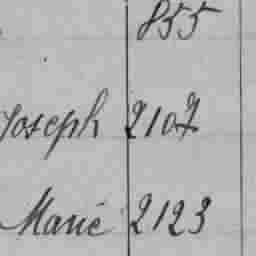 855
Joseph 2107
Marie 2123